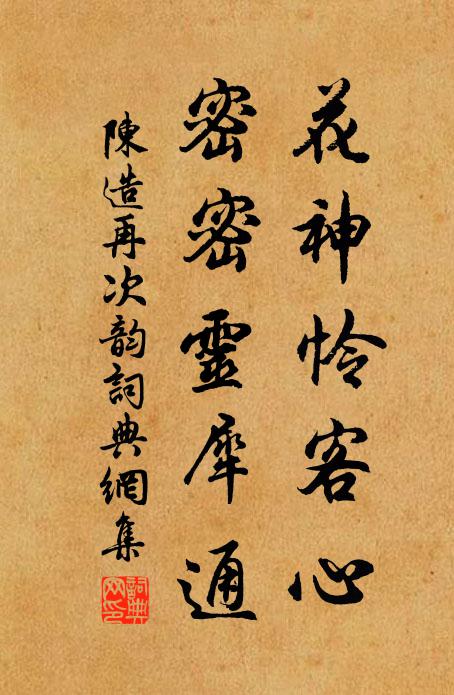 花神怜客心
密密靈犀通
陳造再次韵詞典網集
詞典网印